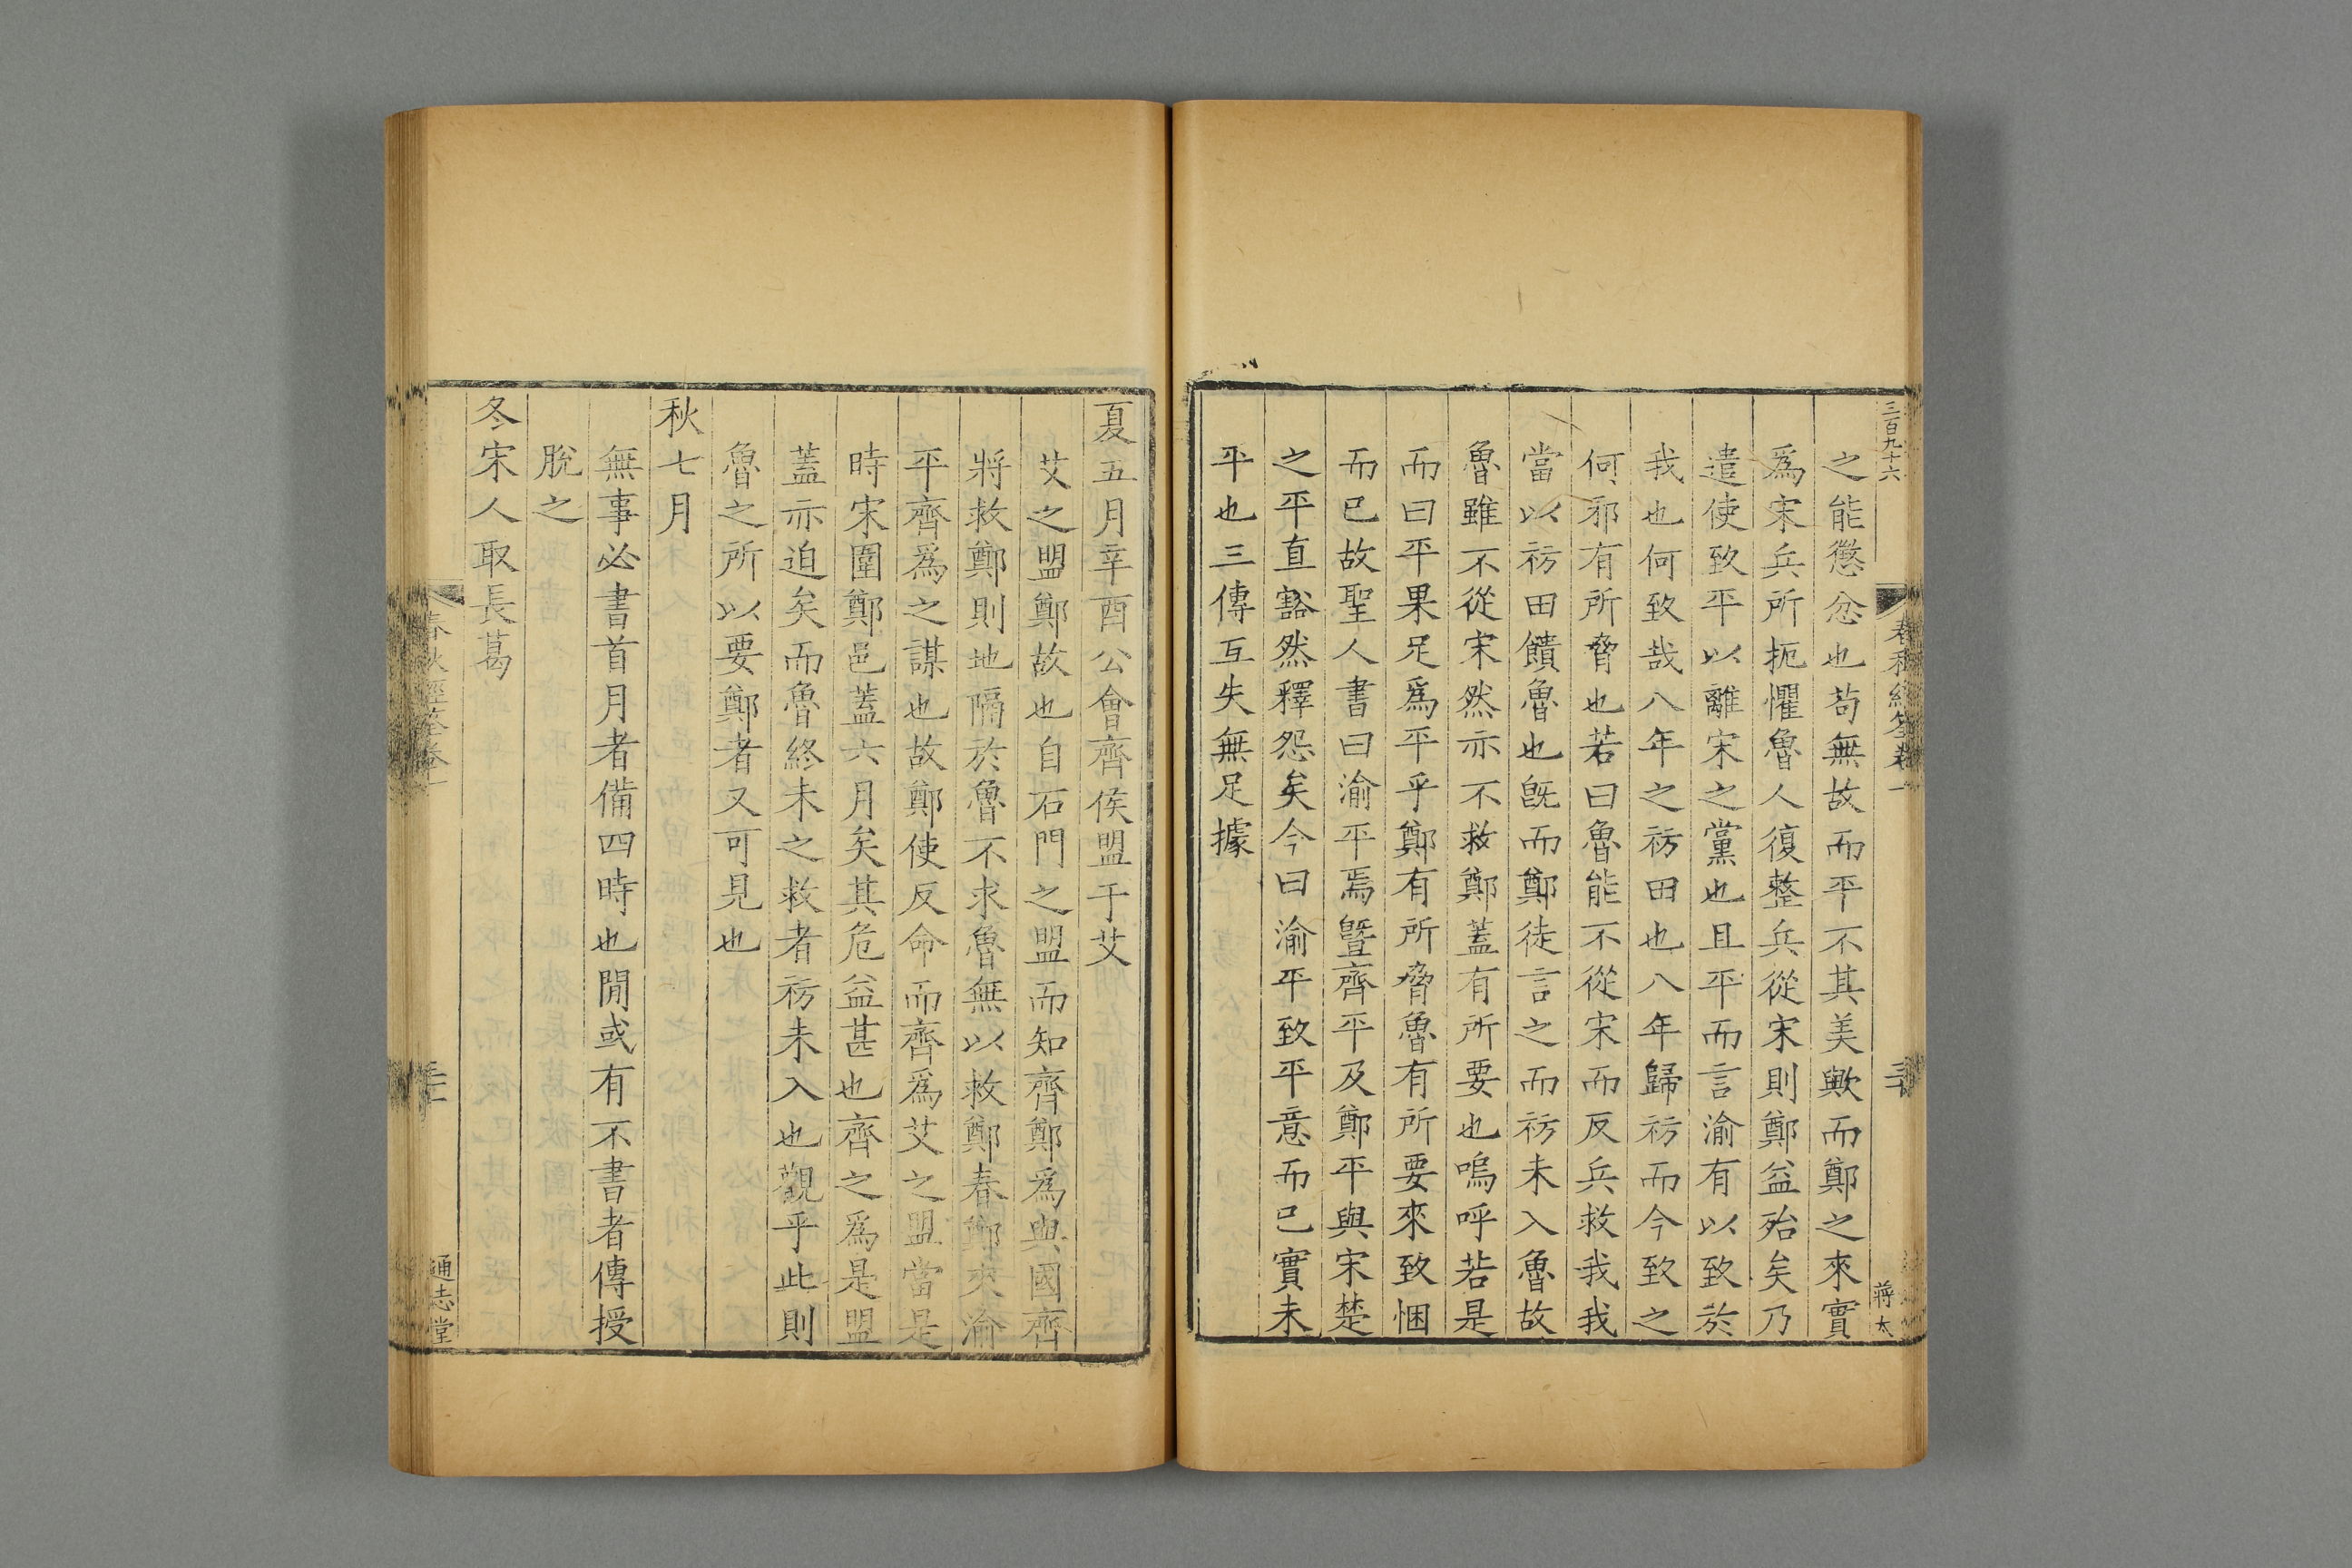 三百九十六
春秋經筌卷一
蔣太
之能懲忿也苟無故而平不其美歟而鄭之來實
爲宋兵所扼懼魯人復整兵從宋則鄭益殆矣乃
遣使致平以離宋之黨也且平而言渝有以致於
我也何致哉八年之祊田也八年歸祊而今致之
何邪有所脅也若曰魯能不從宋而反兵救我我
當以祊田饋魯也旣而鄭徒言之而祊未入魯故
魯雖不從宋然亦不救鄭蓋有所要也嗚呼若是
而曰平果足爲平乎鄭有所脅魯有所要來致悃
而已故聖人書曰渝平焉曁齊平及鄭平與宋楚
之平直豁然釋怨矣今曰渝平致平意而已實未
平也三傳互失無足據
夏五月辛酉公會齊侯盟于艾
艾之盟鄭故也自石門之盟而知齊鄭爲與國齊
將救鄭則地隔於魯不求魯無以救鄭春鄭來渝
平齊爲之謀也故鄭使反命而齊爲艾之盟當是
時宋圍鄭邑蓋六月矣其危益甚也齊之爲是盟
蓋亦迫矣而魯終未之救者祊未入也觀乎此則
魯之所以要鄭者又可見也
秋七月
無事必書首月者備四時也閒或有不書者傳授
脫之
冬宋人取長葛
春秋經筌卷一
通志堂